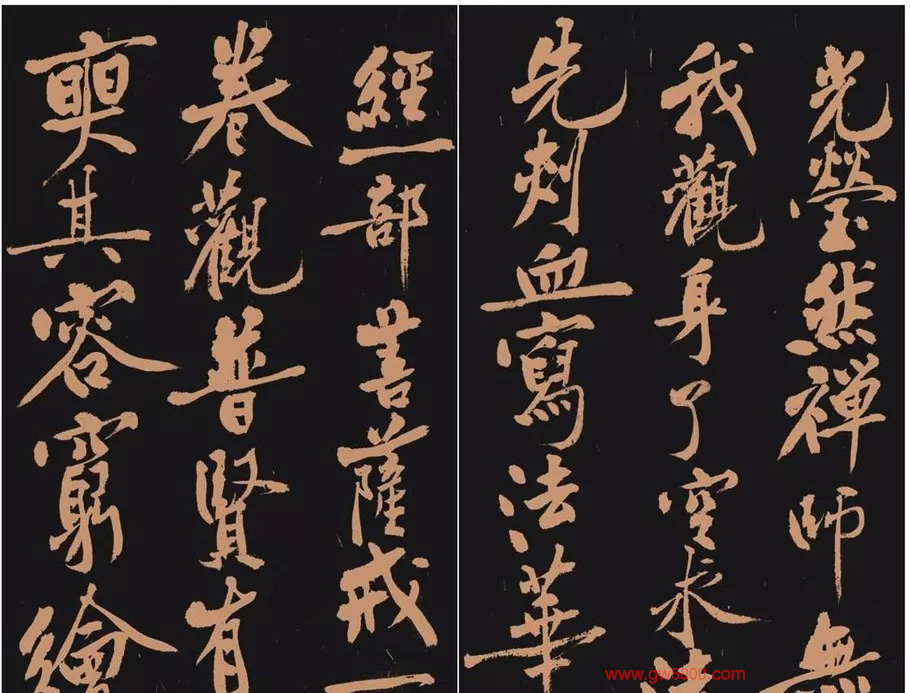 光瑩然禪師無
我觀身了空求法
先刺血寫法華
經一部菩薩戒一
卷觀普賢有
奭其容窮繪
www.gw5800.com